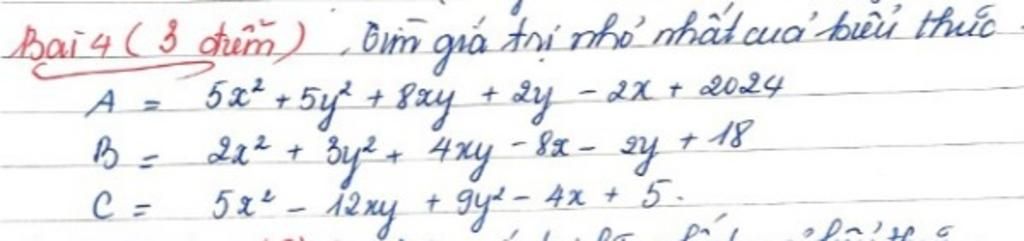 Bài 4 (3 điểm). Tìm giá trị nhỏ nhất của biểu thức.
A = 5x² + 5y² + 8xy + 2y - 2x + 2024
B = 2x² + 3y² + 4xy - 8x - 2y + 18
C = 5x² - 12xy + 9y² - 4x + 5.